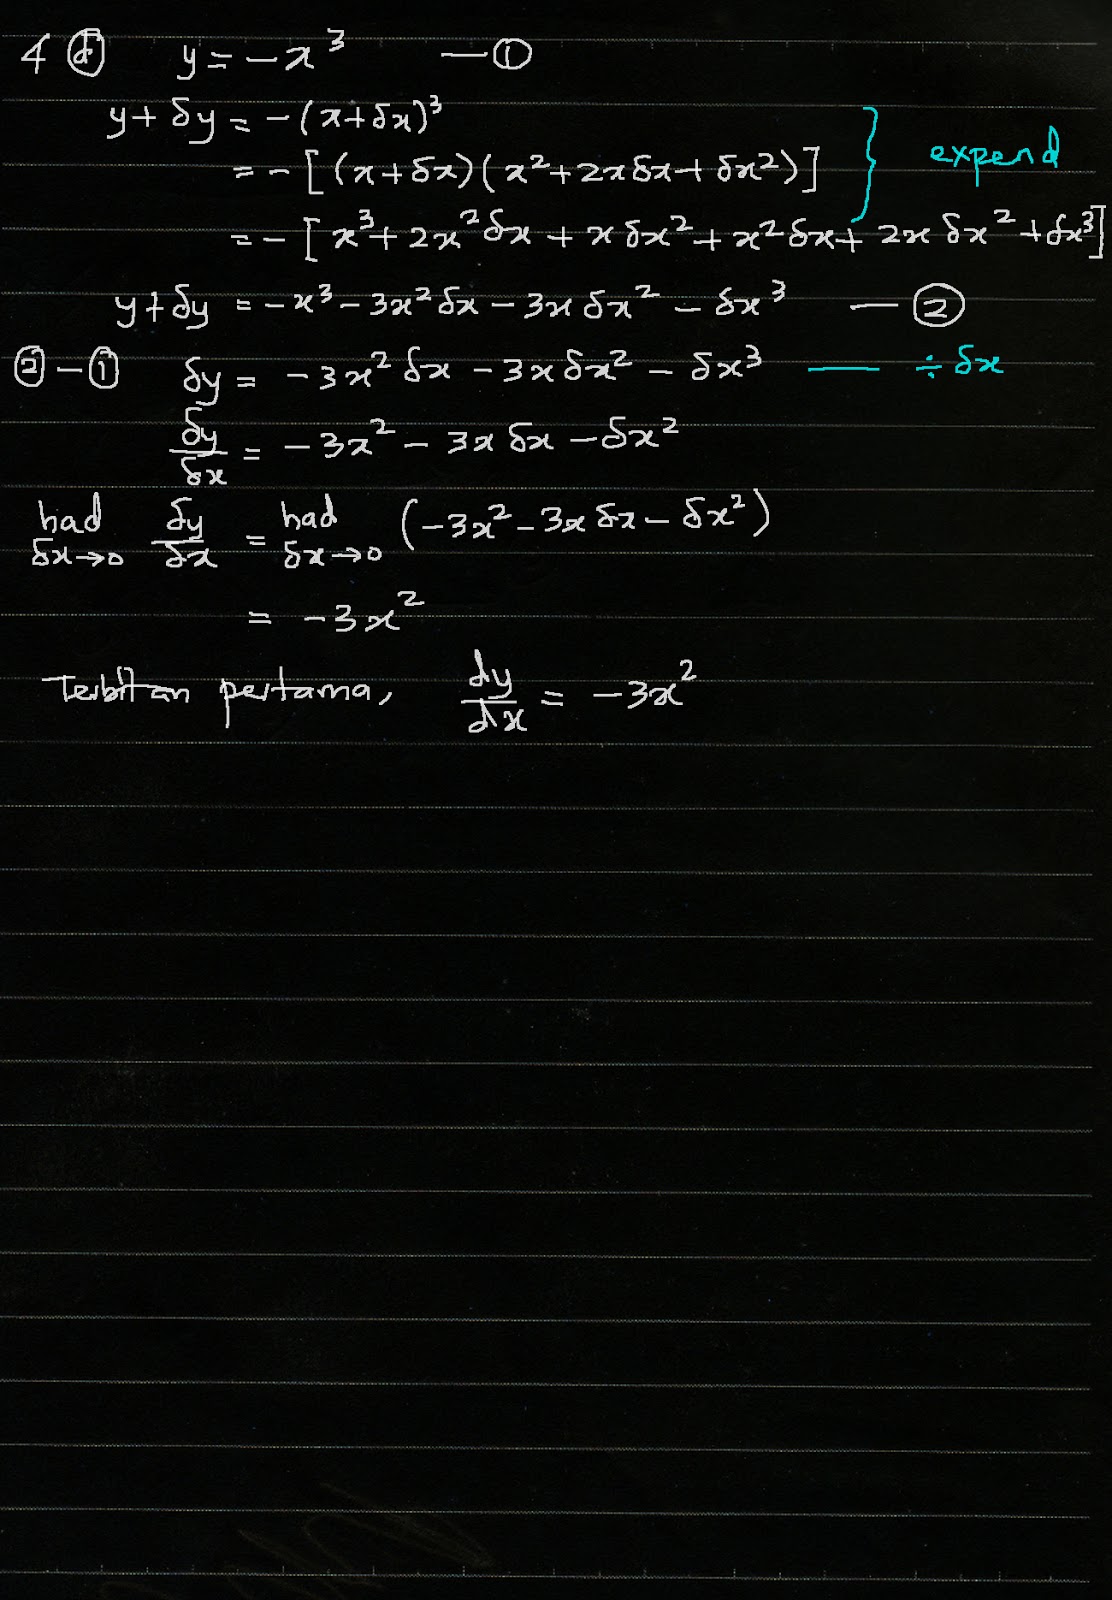 4 ⓓ y = -x³ —①
y + δy = -(x+δx)³
= -[(x+δx)(x²+2xδx+δx²)] } expend
= -[x³+2x²δx+xδx²+x²δx+2xδx²+δx³]
y+δy = -x³-3x²δx-3xδx²-δx³ —②
②-① δy = -3x²δx-3xδx²-δx³ — ÷δx
δy/δx = -3x²-3xδx-δx²
had δx→0 δy/δx = had δx→0 (-3x²-3xδx-δx²)
= -3x²
Terbitan pertama, dy/dx = -3x²